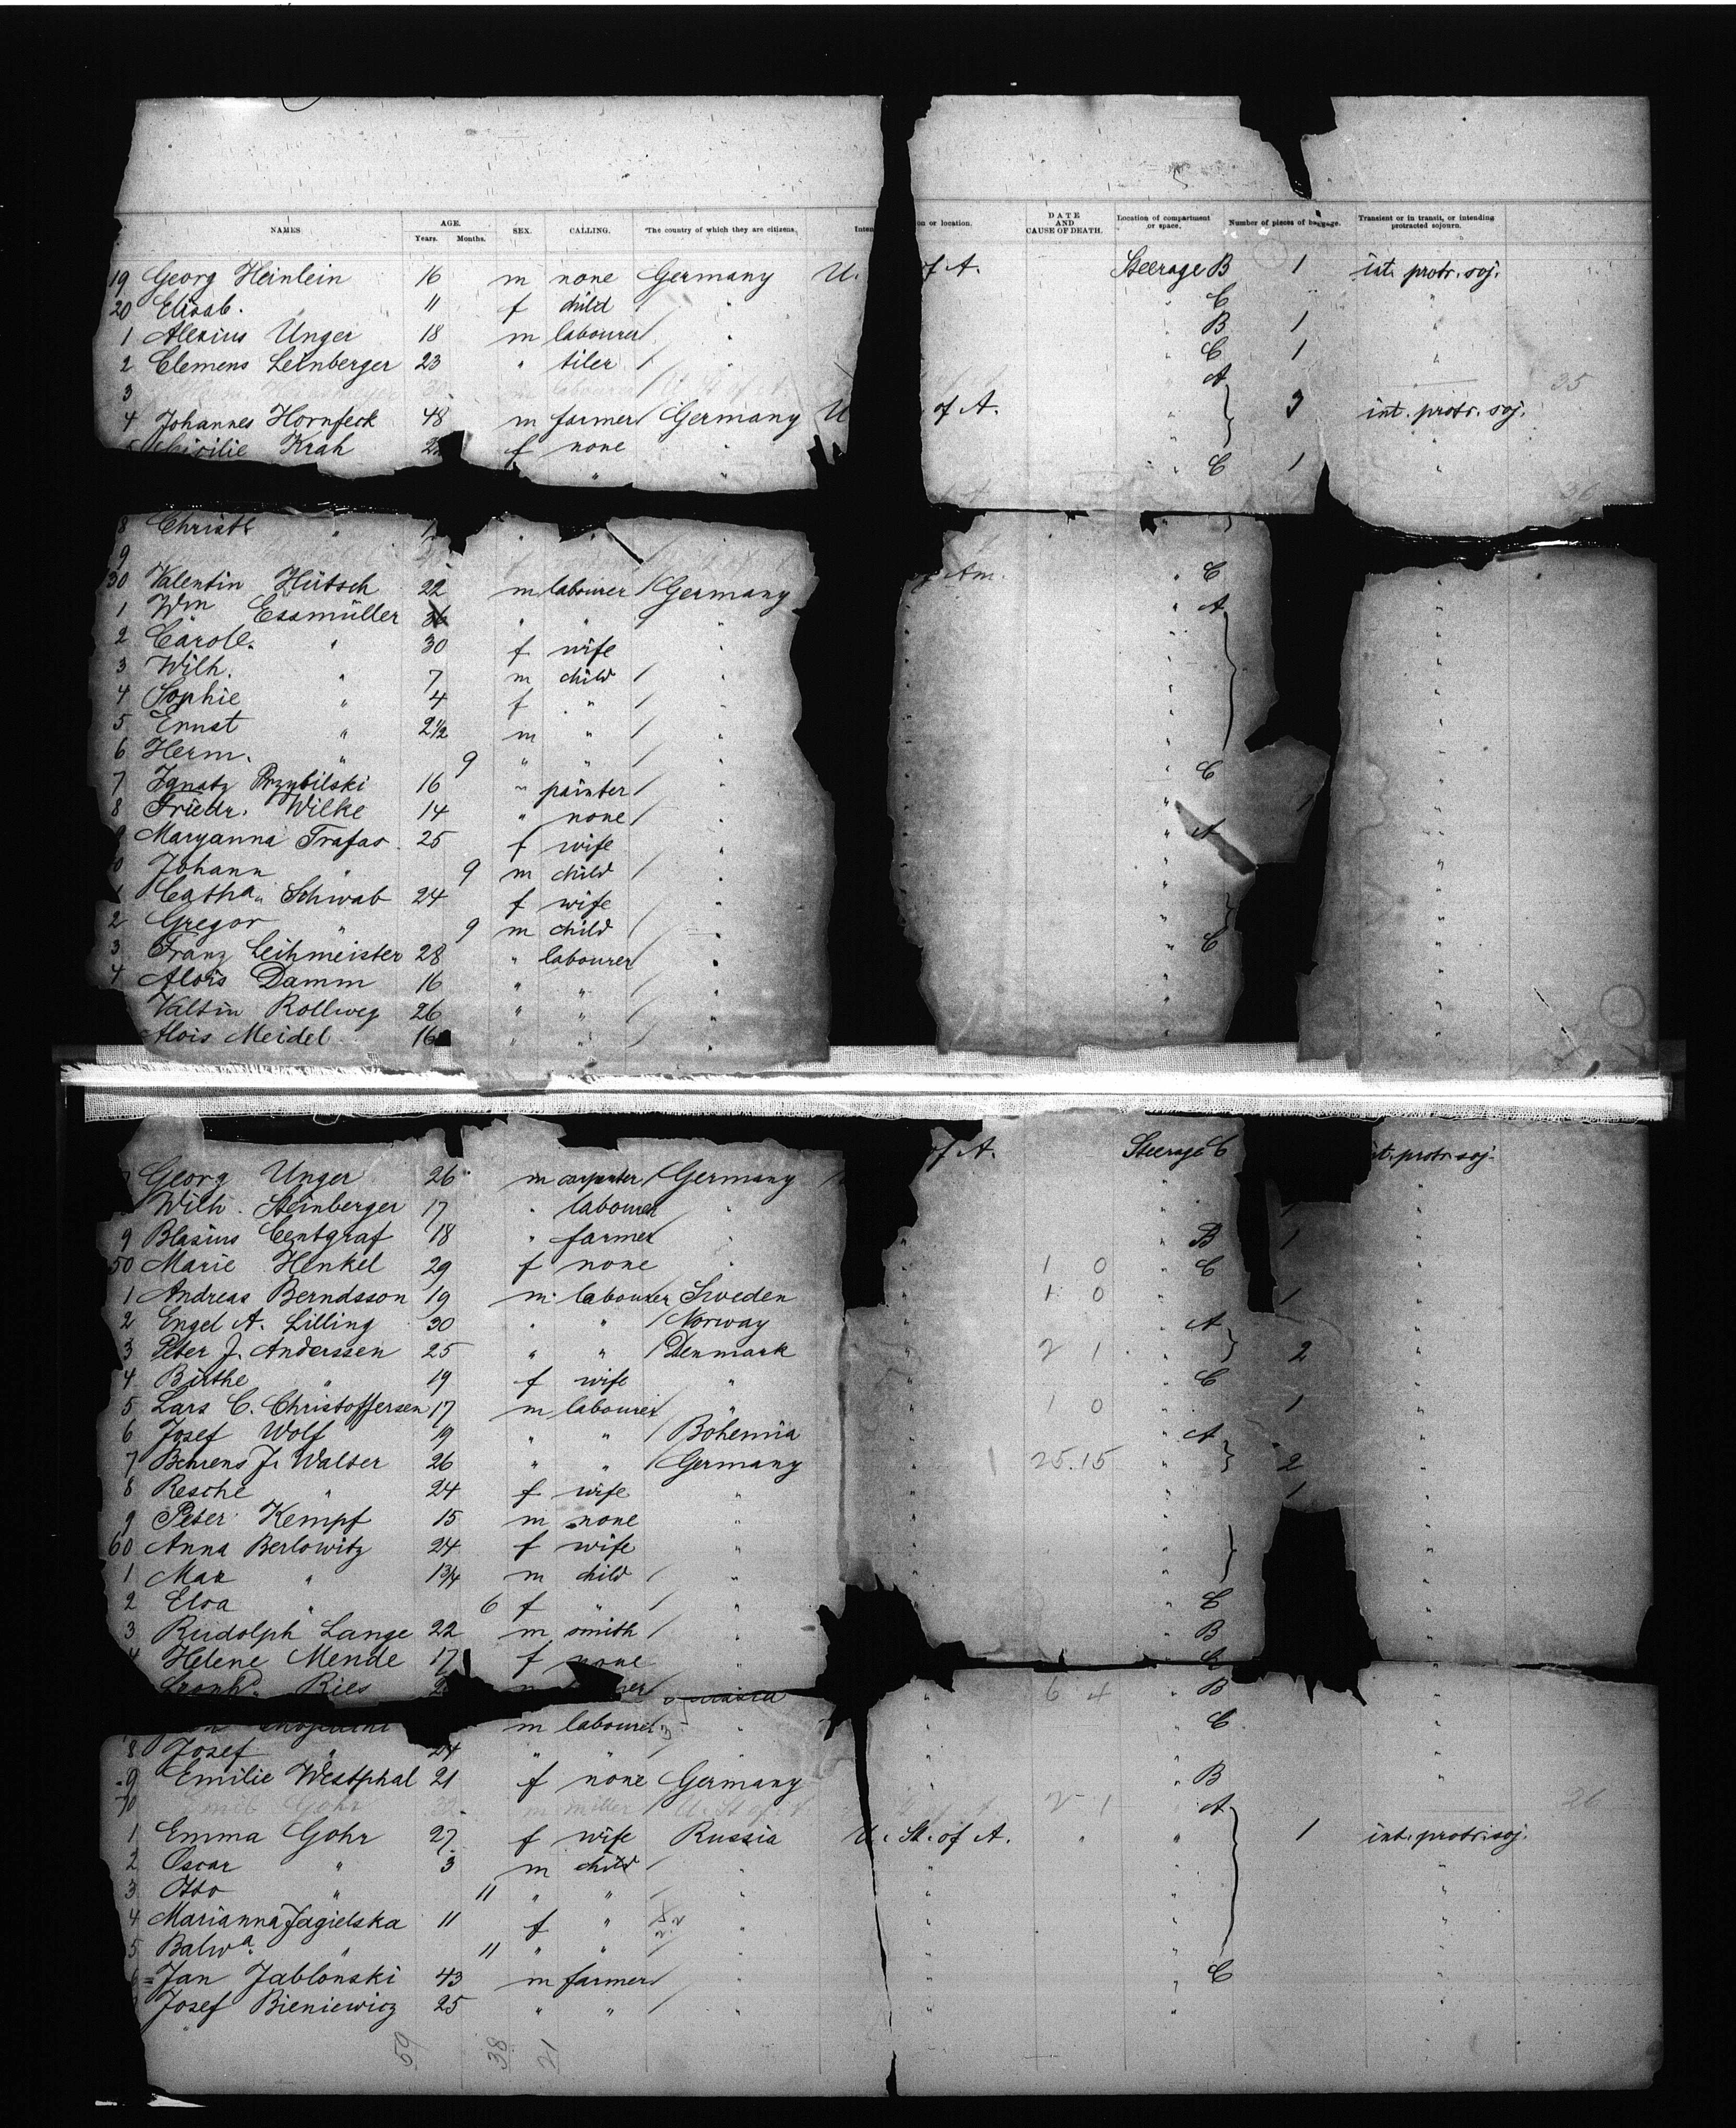 NAMES AGE. SEX. CALLING. The country of which they are citizens. Inten on or location. DATE AND CAUSE OF DEATH. Location of compartment or space. Number of pieces of baggage. Transient or in transit, or intending protracted sojourn.
Years. Months.
19 Georg Heinlein 16 m none Germany U. of A. Steerage B 1 int. protr. soj.
20 Elisab. " 11 f child " " C "
1 Alexius Unger 18 m labourer " " B 1 "
2 Clemens Leinberger 23 " tiler " " C 1 "
3 A 35
4 Johannes Hornfeck 48 m farmer Germany U of A. " 3 int. protr. soj.
Krah f none " "
" " " C 1 "
36
8 Christe "
9
30 Valentin Hütsch 22 m labourer Germany Am. " C "
1 Wm Essmüller 36 " " " " A "
2 Carole. " 30 f wife " " "
3 Wilh. " 7 m child " " "
4 Sophie " 4 f " " " "
5 Ernst " 2 1/2 m " " " "
6 Herm. " 9 " " " " "
7 Ignatz Przybilski 16 " painter " " C "
8 Friedr. Wilke 14 " none " " 1 "
9 Maryanna Trafas 25 f wife " " A "
0 Johann " 9 m child " " "
1 Catha. Schwab 24 f wife " " "
2 Gregor " 9 m child " " "
3 Franz Leihmeister 28 " labourer " " C "
4 Alois Damm 16 " " " " "
Valtin Rollweg 26 " " " " "
Alois Meidel 16 " " " " "
Georg Unger 26 m carpenter Germany of A. Steerage C t. protr. soj.
Wilh. Steinberger 17 " labourer " " 1 "
9 Blasius Centgraf 18 " farmer " " B 1 "
50 Marie Henkel 29 f none " 1 0 " C "
1 Andreas Berndsson 19 m labourer Sweden " 1 0 " 1 "
2 Engel A. Lilling 30 " " Norway " " A "
3 Peter J. Anderssen 25 " " Denmark " 2 1 " 2 "
4 Birthe " 19 f wife " " " C "
5 Lars C. Christoffersen 17 m labourer " " 1 0 " 1 "
6 Josef Wolf 19 " " Bohemia " " A "
7 Behrens J. Walter 26 " " Germany " 25.15 " 2 "
8 Resche " 24 f wife " " " 1 "
9 Peter Kempf 15 m none " " " "
60 Anna Berlowitz 24 f wife " " " "
1 Max " 1 3/4 m child " " " "
2 Elsa " 6 f " " " " C "
3 Rudolph Lange 22 m smith " " " B "
4 Helene Mende 17 f none " " C "
Ries " 6 4 " B "
m labourer " " " C "
8 Josef " 24 " " " " " "
9 Emilie Westphal 21 f none Germany " " B "
70 Emil Gohr m miller U. St. of A. 2 1 A 36
1 Emma Gohr 27 f wife Russia U. St. of A. " " 1 int. protr. soj.
2 Oscar " 3 m child " " " "
3 Otto " 11 " " " " " "
4 Marianna Jagielska 11 f " " " " "
5 Balwa. " 11 " " " " " "
6 Jan Jablonski 43 m farmer " " " C "
Josef Bieniewicz 25 " " " " " "
59 38 21